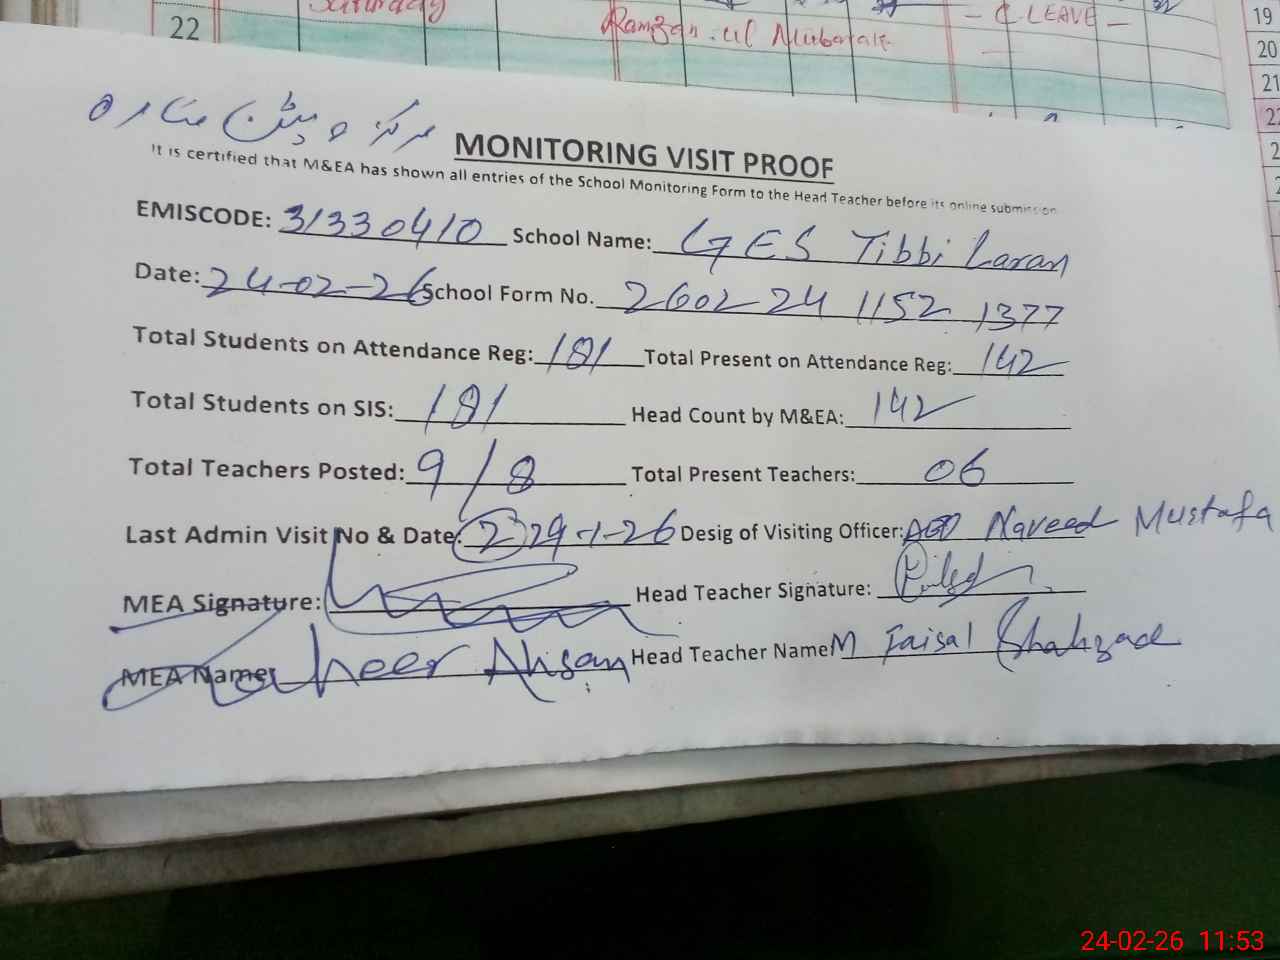 Saturday
22
Ramzan.ul Mubarak
- C LEAVE -
19
20
21
مرکز
MONITORING VISIT PROOF
It is certified that M&EA has shown all entries of the School Monitoring Form to the Head Teacher before its online submission
EMISCODE: 31330410 School Name: GES Tibbi Laran
Date: 24-02-26 School Form No. 260224 1152 1377
Total Students on Attendance Reg: 181 Total Present on Attendance Reg: 142
Total Students on SIS: 181 Head Count by M&EA: 142
Total Teachers Posted: 9/8 Total Present Teachers: 06
Last Admin Visit No & Date: 2 29-1-26 Desig of Visiting Officer: Naveed Mustafa
MEA Signature: Head Teacher Signature:
MEA Name: Ahsan Head Teacher Name M Faisal Shahzad
24-02-26 11:53